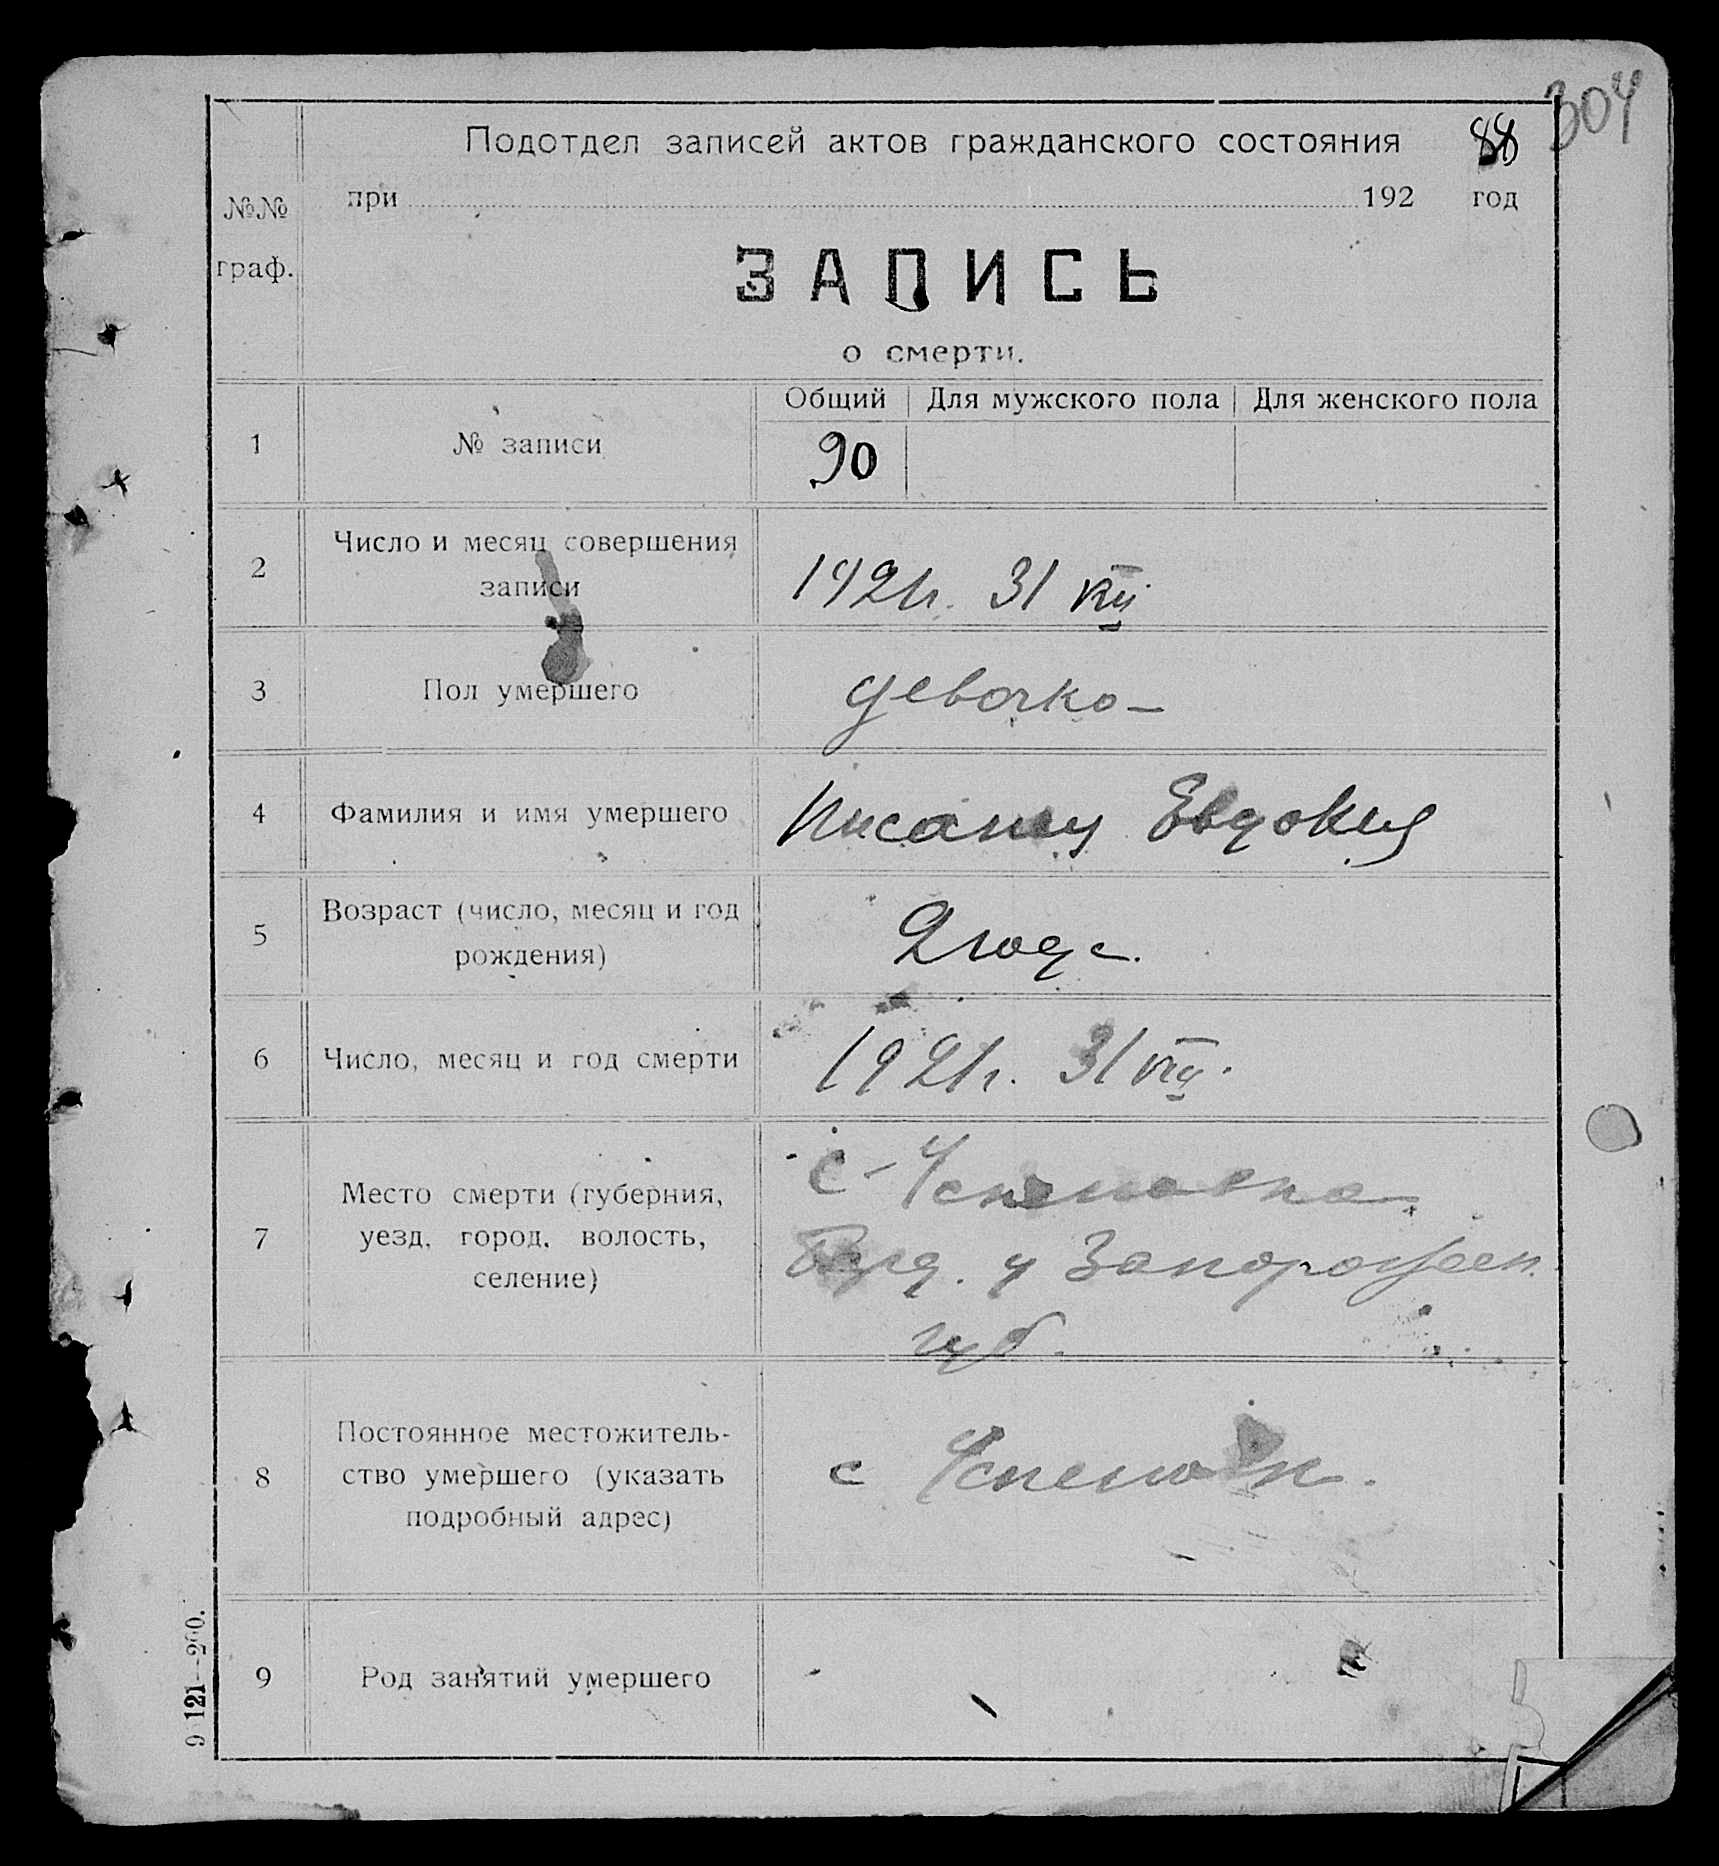 304
Подотдел записей актов гражданского состояния 88
при 192 год
№№ граф.
ЗАПИСЬ
о смерти.
Общий Для мужского пола Для женского пола
1 № записи 90
2 Число и месяц совершения
записи 1921г. 31 VII
3 Пол умершего девочка
4 Фамилия и имя умершего Евдокия
5 Возраст (число, месяц и год
рождения) 2 года.
6 Число, месяц и год смерти 1921г. 31 VII.
7 Место смерти (губерния,
уезд, город, волость,
селение)
с Успеновка
Берд. у Запорожск.
губ.
8 Постоянное местожитель-
ство умершего (указать
подробный адрес)
с Успеновк.
9 Род занятий умершего